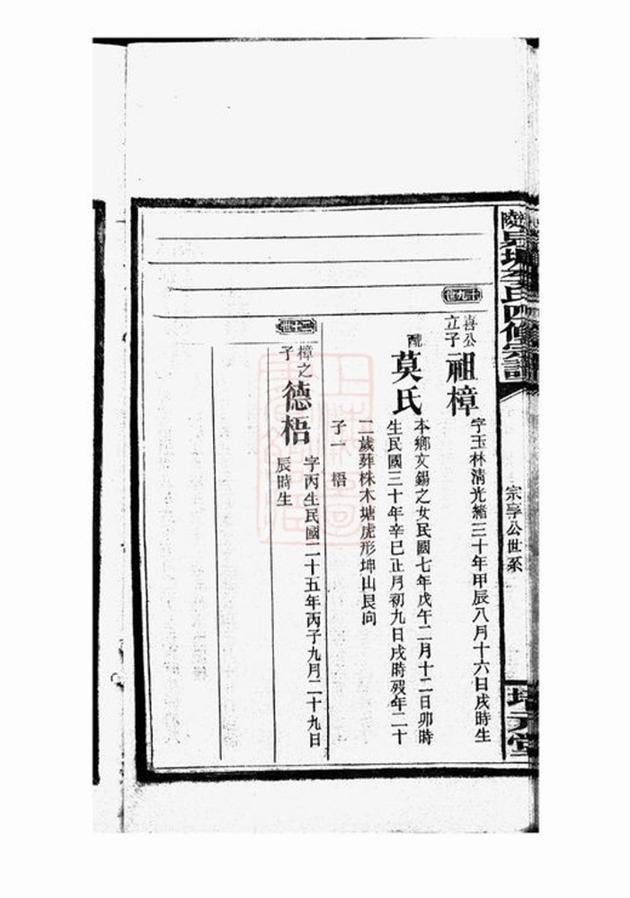 氏四修宗譜
宗孚公世系
元堂
十九世
喜公
立子
祖樟
字玉林清光緒三十年甲辰八月十六日戌時生
配
莫氏
本鄉文錫之女民國七年戊午二月十二日卯時
生民國三十年辛巳正月初九日戌時歿年二十
二歲葬株木塘虎形坤山艮向
子一 梧
二十世
樟之
子
德梧
字丙生民國二十五年丙子九月二十九日
辰時生